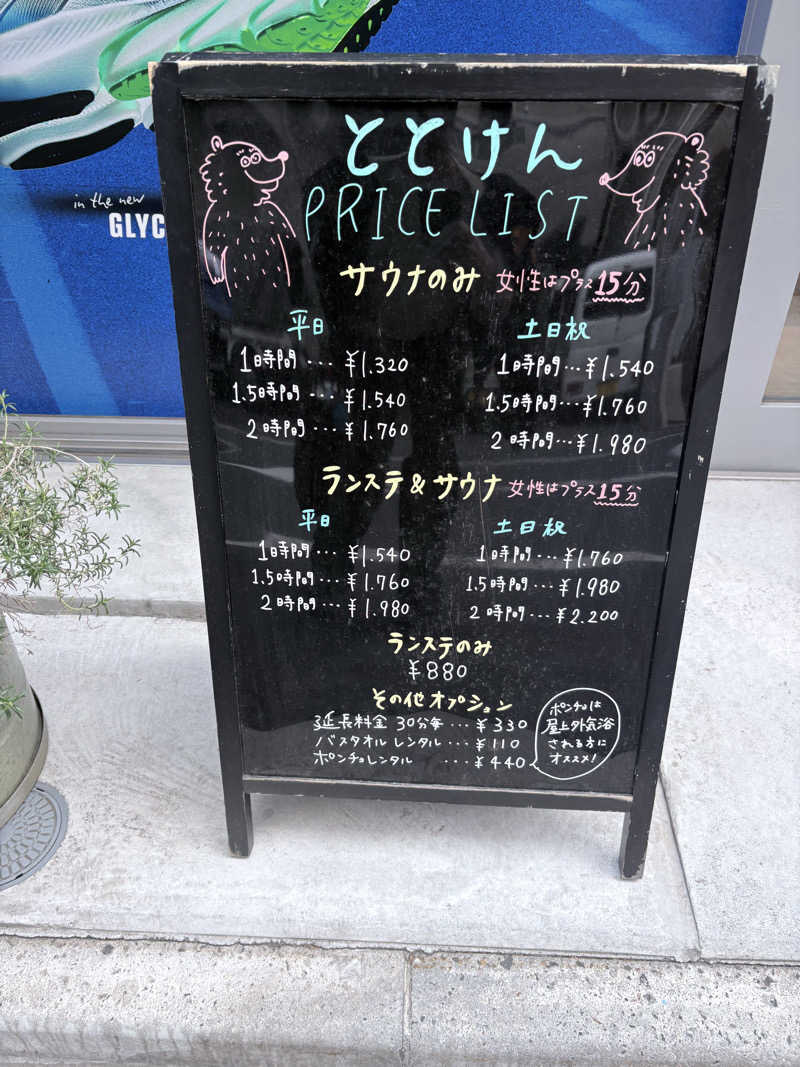 in the new
GLYC
ととけん
PRICE LIST
サウナのみ 女性はプラス15分
平日
1時間・・・¥1.320
1.5時間・・・¥1.540
2時間・・・¥1.760
土日祝
1時間・・・¥1.540
1.5時間・・・¥1.760
2時間・・・¥1.980
ランステ&サウナ 女性はプラス15分
平日
1時間・・・¥1.540
1.5時間・・・¥1.760
2時間・・・¥1.980
土日祝
1時間・・・¥1.760
1.5時間・・・¥1.980
2時間・・・¥2.200
ランステのみ
¥880
その他オプション
延長料金 30分毎・・・¥330
バスタオルレンタル・・・¥110
ポンチョレンタル ・・・¥440
ポンチョは
屋上外気浴
される方に
オススメ!